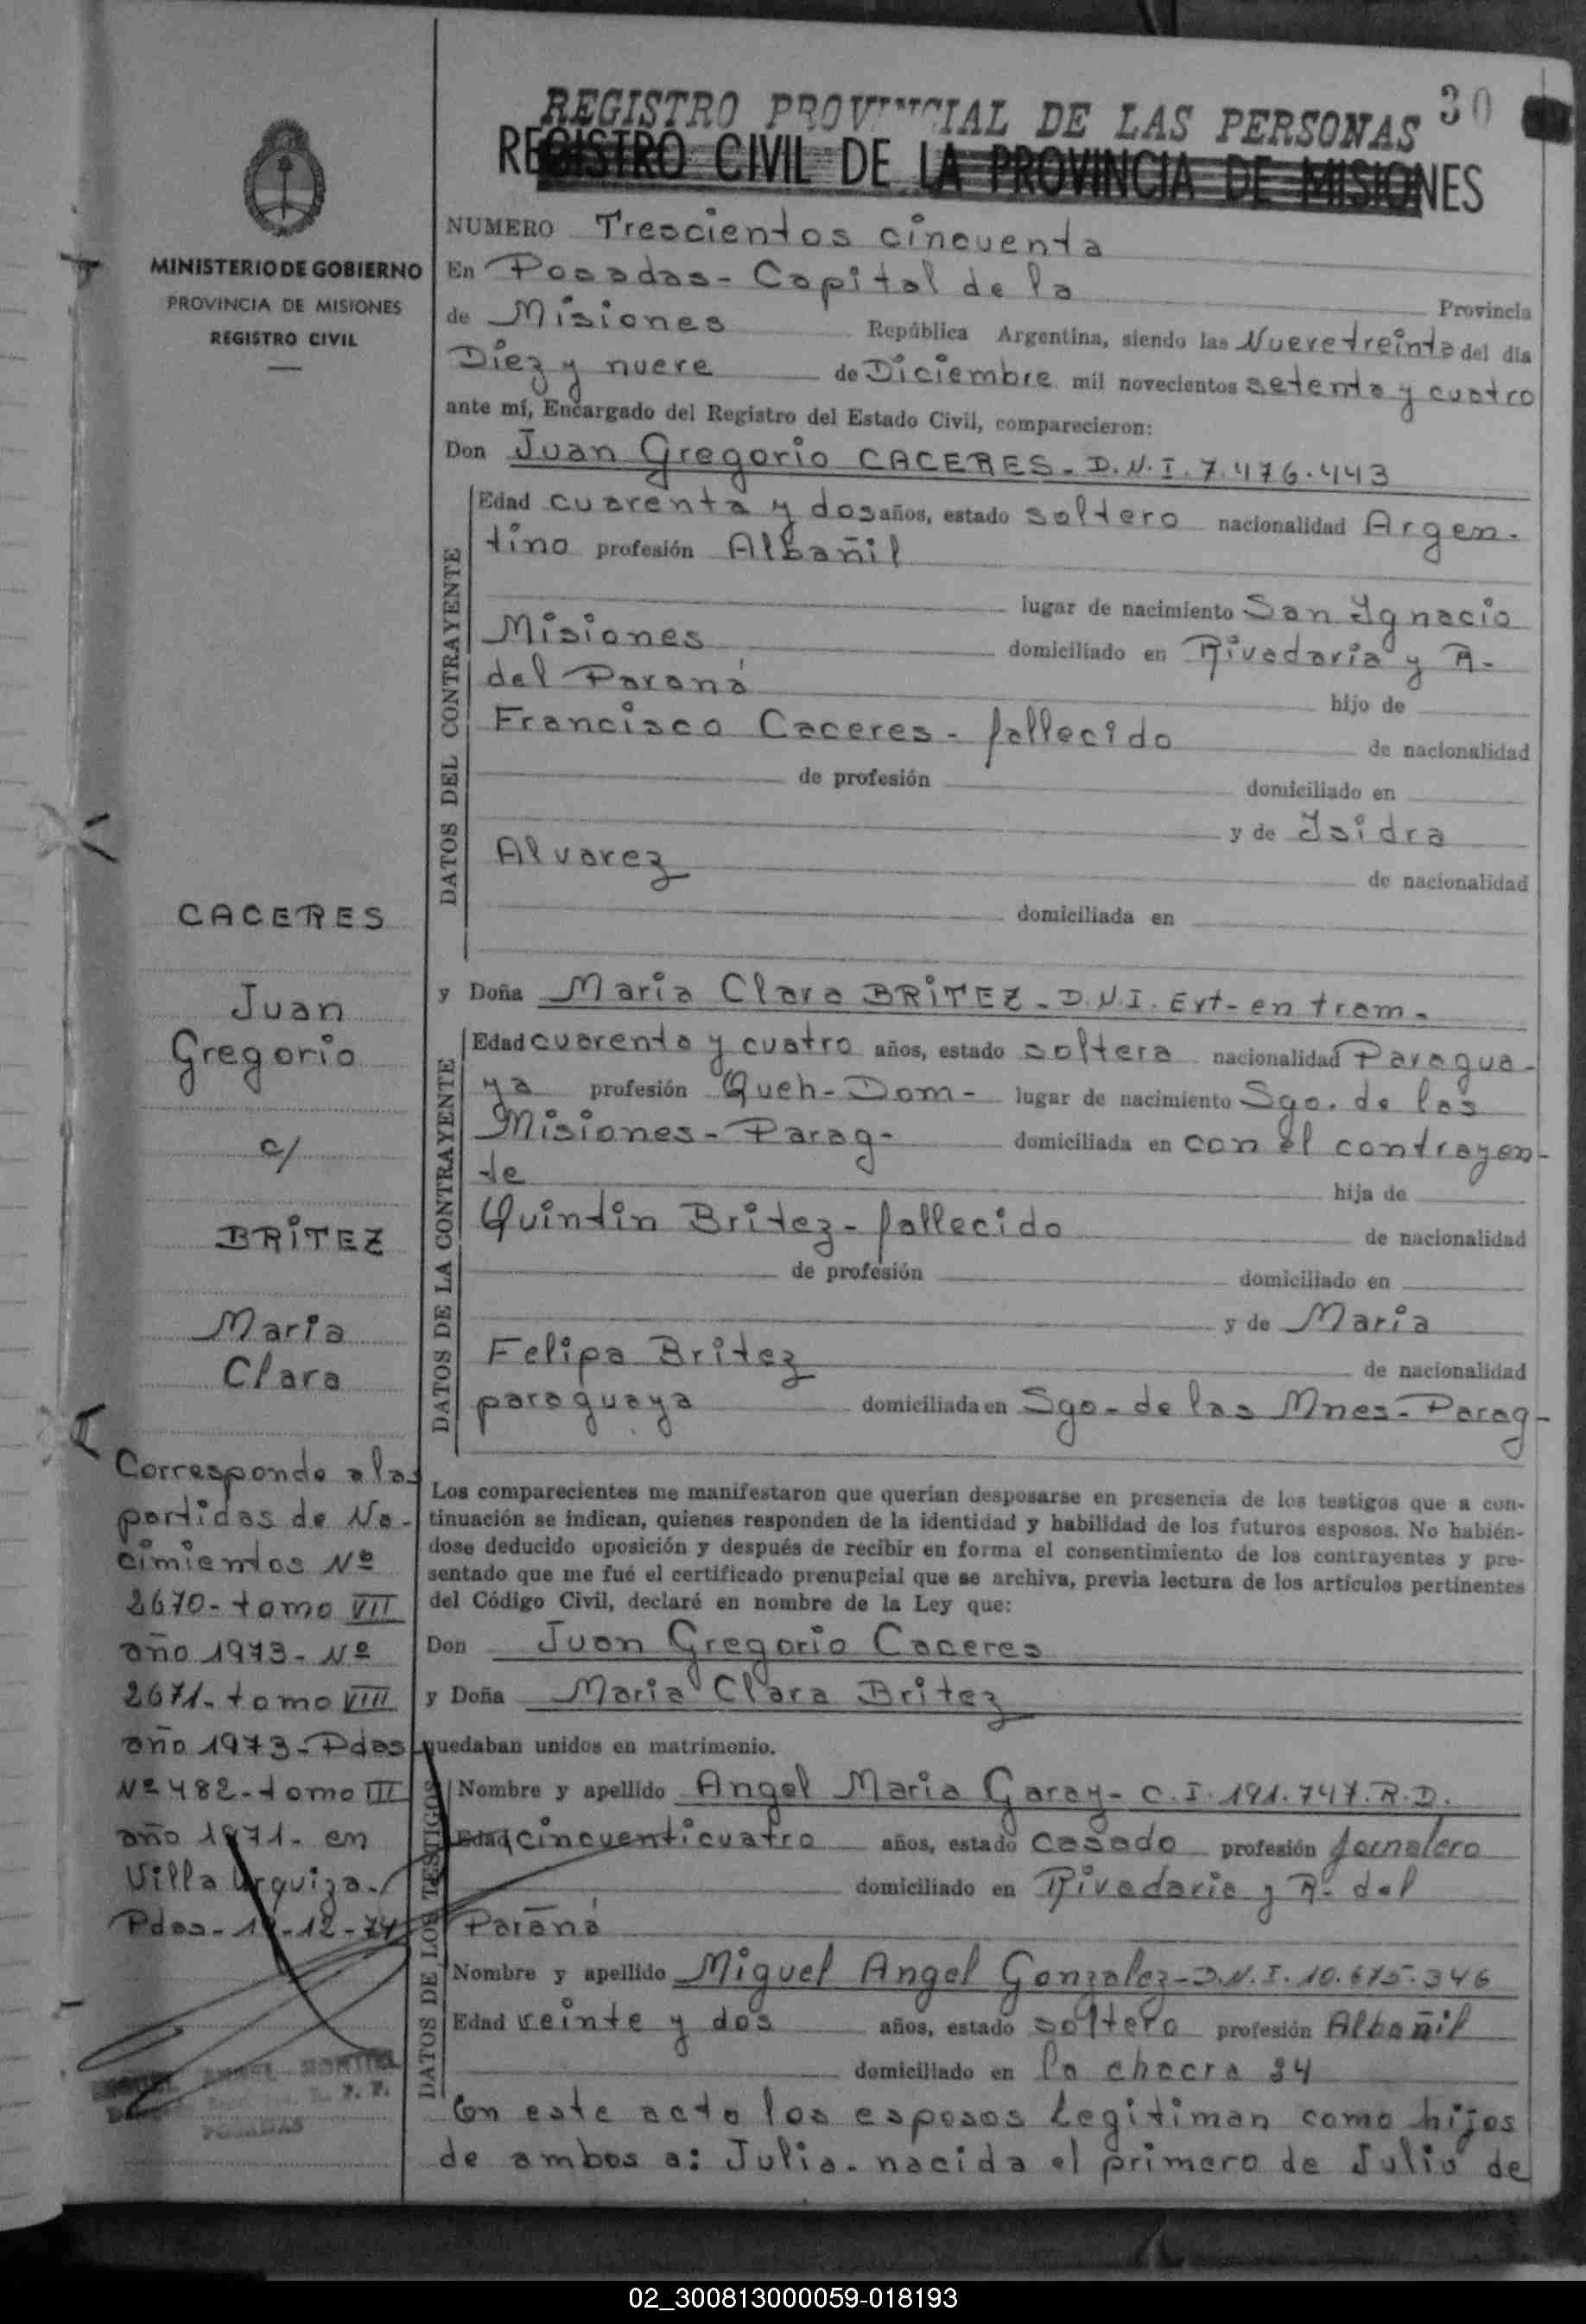 30
REGISTRO PROVINCIAL DE LAS PERSONAS
REGISTRO CIVIL DE LA PROVINCIA DE MISIONES
MINISTERIO DE GOBIERNO
PROVINCIA DE MISIONES
REGISTRO CIVIL
NUMERO Trescientos cincuenta
En Posadas - Capital de la Provincia
de Misiones República Argentina, siendo las Nueve treinta del día
Diez y nueve de Diciembre mil novecientos setenta y cuatro
ante mí, Encargado del Registro del Estado Civil, comparecieron:
Don Juan Gregorio CACERES - D.N.I. 7.476.443
DATOS DEL CONTRAYENTE
Edad cuarenta y dos años, estado soltero nacionalidad Argen-
tino profesión Albañil
lugar de nacimiento San Ignacio
Misiones domiciliado en Rivadavia y R-
del Paraná hijo de
Francisco Caceres - fallecido de nacionalidad
de profesión domiciliado en
y de Isidra
Alvarez de nacionalidad
domiciliada en
y Doña Maria Clara BRITEZ - D.N.I. Ext - en tram -
DATOS DE LA CONTRAYENTE
Edad cuarenta y cuatro años, estado soltera nacionalidad Paragua-
ya profesión Queh - Dom - lugar de nacimiento Sgo. de las
Misiones - Parag - domiciliada en con el contrayen-
te hija de
Quintin Britez - fallecido de nacionalidad
de profesión domiciliado en
y de Maria
Felipa Britez de nacionalidad
paraguaya domiciliada en Sgo - de las Mnes - Parag -
CACERES
Juan
Gregorio
c/
BRITEZ
Maria
Clara
Corresponde a las
partidas de Na-
cimientos Nº
2670 - tomo VII
año 1973 - Nº
2671 - tomo VIII
año 1973 - Pdas
Nº 482 - tomo III
año 1971 - en
Villa Urquiza -
Pdas - 19-12-74
MONTIEL
POSADAS
Los comparecientes me manifestaron que querían desposarse en presencia de los testigos que a con-
tinuación se indican, quienes responden de la identidad y habilidad de los futuros esposos. No habién-
dose deducido oposición y después de recibir en forma el consentimiento de los contrayentes y pre-
sentado que me fué el certificado prenupcial que se archiva, previa lectura de los artículos pertinentes
del Código Civil, declaré en nombre de la Ley que:
Don Juan Gregorio Caceres
y Doña Maria Clara Britez
quedaban unidos en matrimonio.
DATOS DE LOS TESTIGOS
Nombre y apellido Angel Maria Garay - C.I. 191.747. R.D.
Edad cincuenticuatro años, estado casado profesión jornalero
domiciliado en Rivadavia y R - del
Paraná
Nombre y apellido Miguel Angel Gonzalez - D.N.I. 10.675.346
Edad veinte y dos años, estado soltero profesión Albañil
domiciliado en la chacra 34
En este acto los esposos legitiman como hijos
de ambos a: Julia - nacida el primero de Julio de
02_300813000059-018193